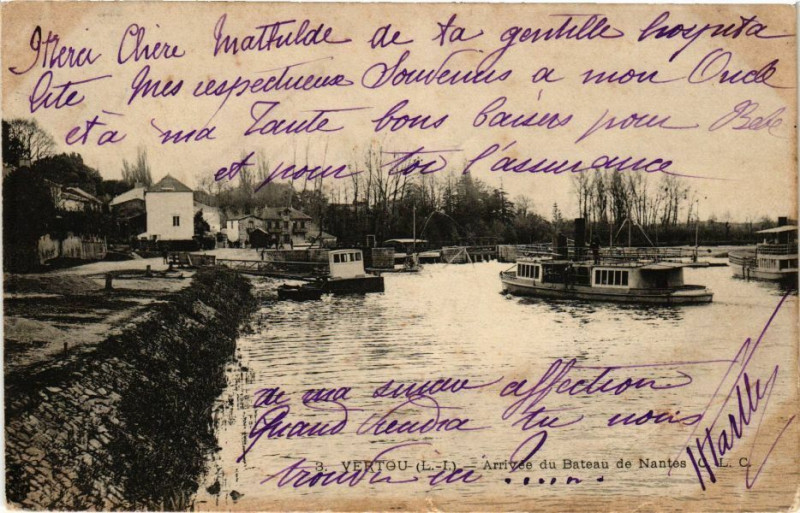 Merci Chère Mathilde de ta gentille hospita
lité Mes respectueux Souvenirs a mon Oncle
et à ma Tante bons baisers pour Bebe
et pour toi l'assurance
de ma sincère affection
Quand viendra tu nous
trouver ici ? .....
Marthe
3. VERTOU (L.-I.) – Arrivée du Bateau de Nantes
L. C.